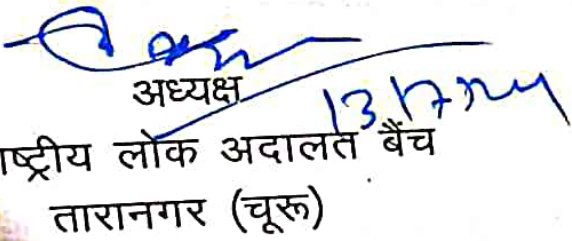 अध्यक्ष
13/7/24
ाष्ट्रीय लोक अदालत बैंच
तारानगर (चूरू)